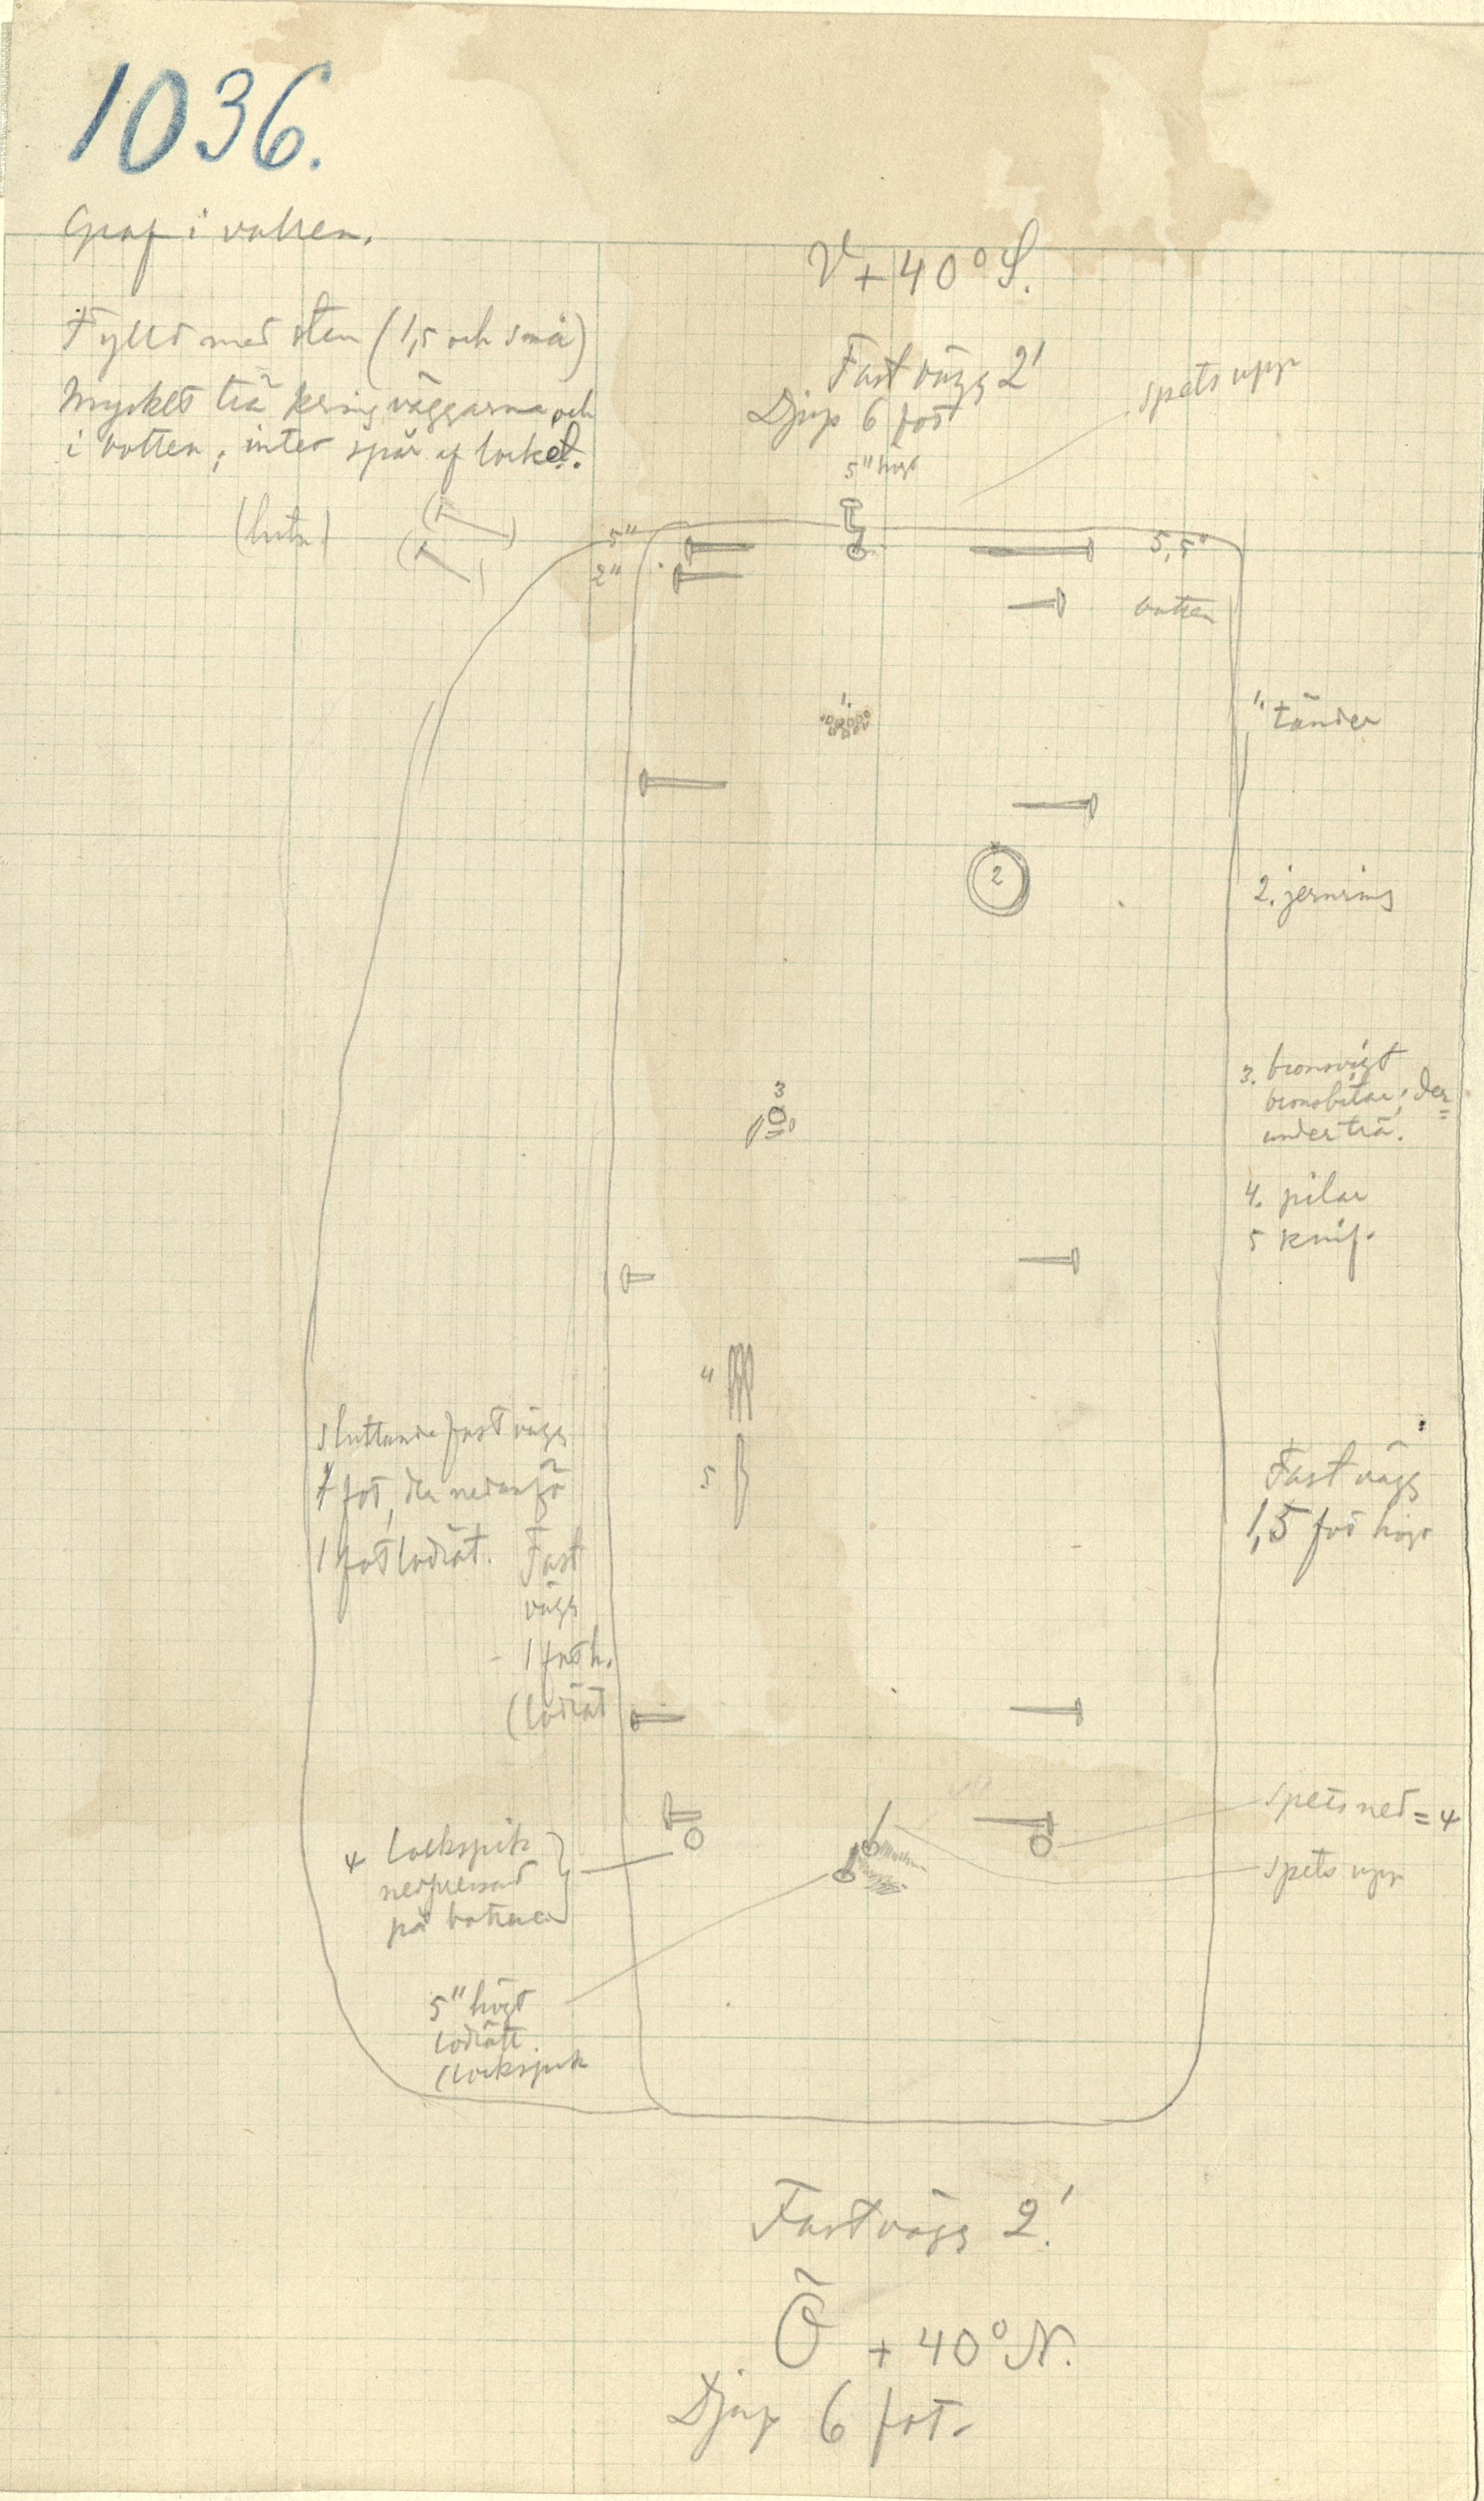 1036.
Graf i vallen.
V + 40° S.
Fylld med sten (1,5 och små)
Mycket trä kring väggarna och
i botten; intet spår af locket.
Fast vägg 2'
Djup 6 fot
5" högt
spets upp
5"
2"
5,5"
botten
1.
1. tänder
2
2. jernring
3
3. bronsvigt
bronsbitar; der=
under trä.
4. pilar
5 knif.
4
5
sluttande fast vägg
1 fot, der nedanför
1 fot lodrät.
Fast
vägg
1 fot h.
(lodrät
Fast vägg
1,5 fot hög
spets ned = 4
spets upp
4 Lockspik
nedpressad
på bottnen
5" högt
lodrätt.
(lockspik
Fast vägg 2'.
Ö + 40° N.
Djup 6 fot.